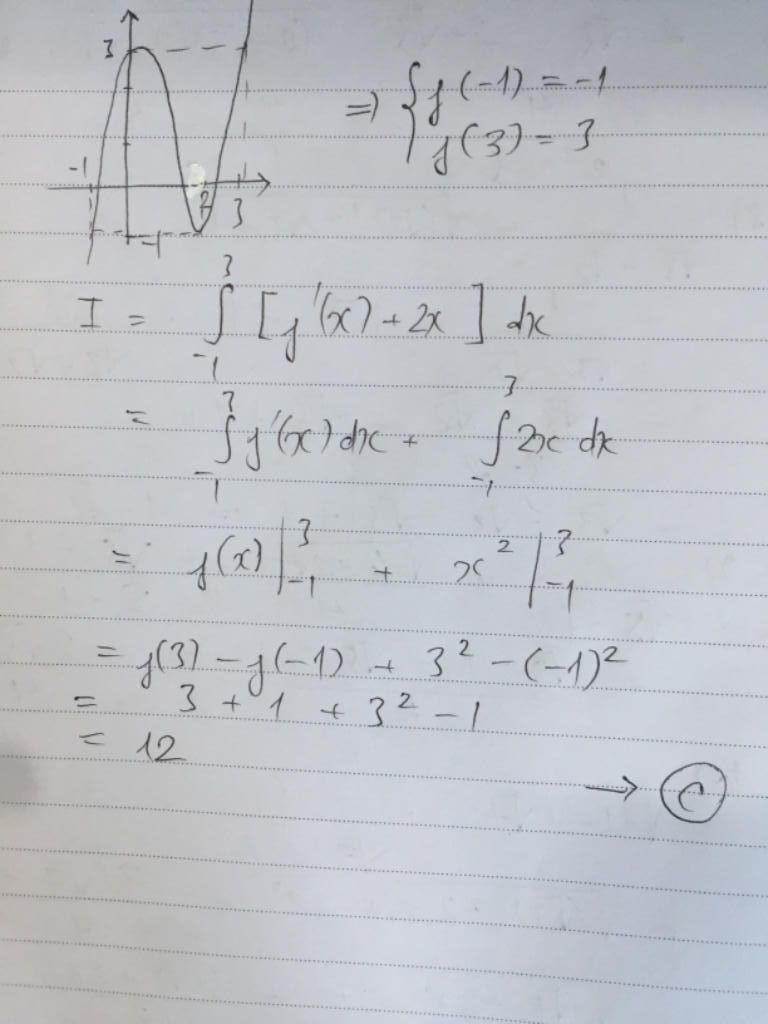 3
-1
2
3
-1
=> { f(-1) = -1
f(3) = 3
I = ∫_{-1}^{3} [f'(x) + 2x] dx
= ∫_{-1}^{3} f'(x) dx + ∫_{-1}^{3} 2x dx
= f(x) |_{-1}^{3} + x² |_{-1}^{3}
= f(3) - f(-1) + 3² - (-1)²
= 3 + 1 + 3² - 1
= 12
→ Ⓒ